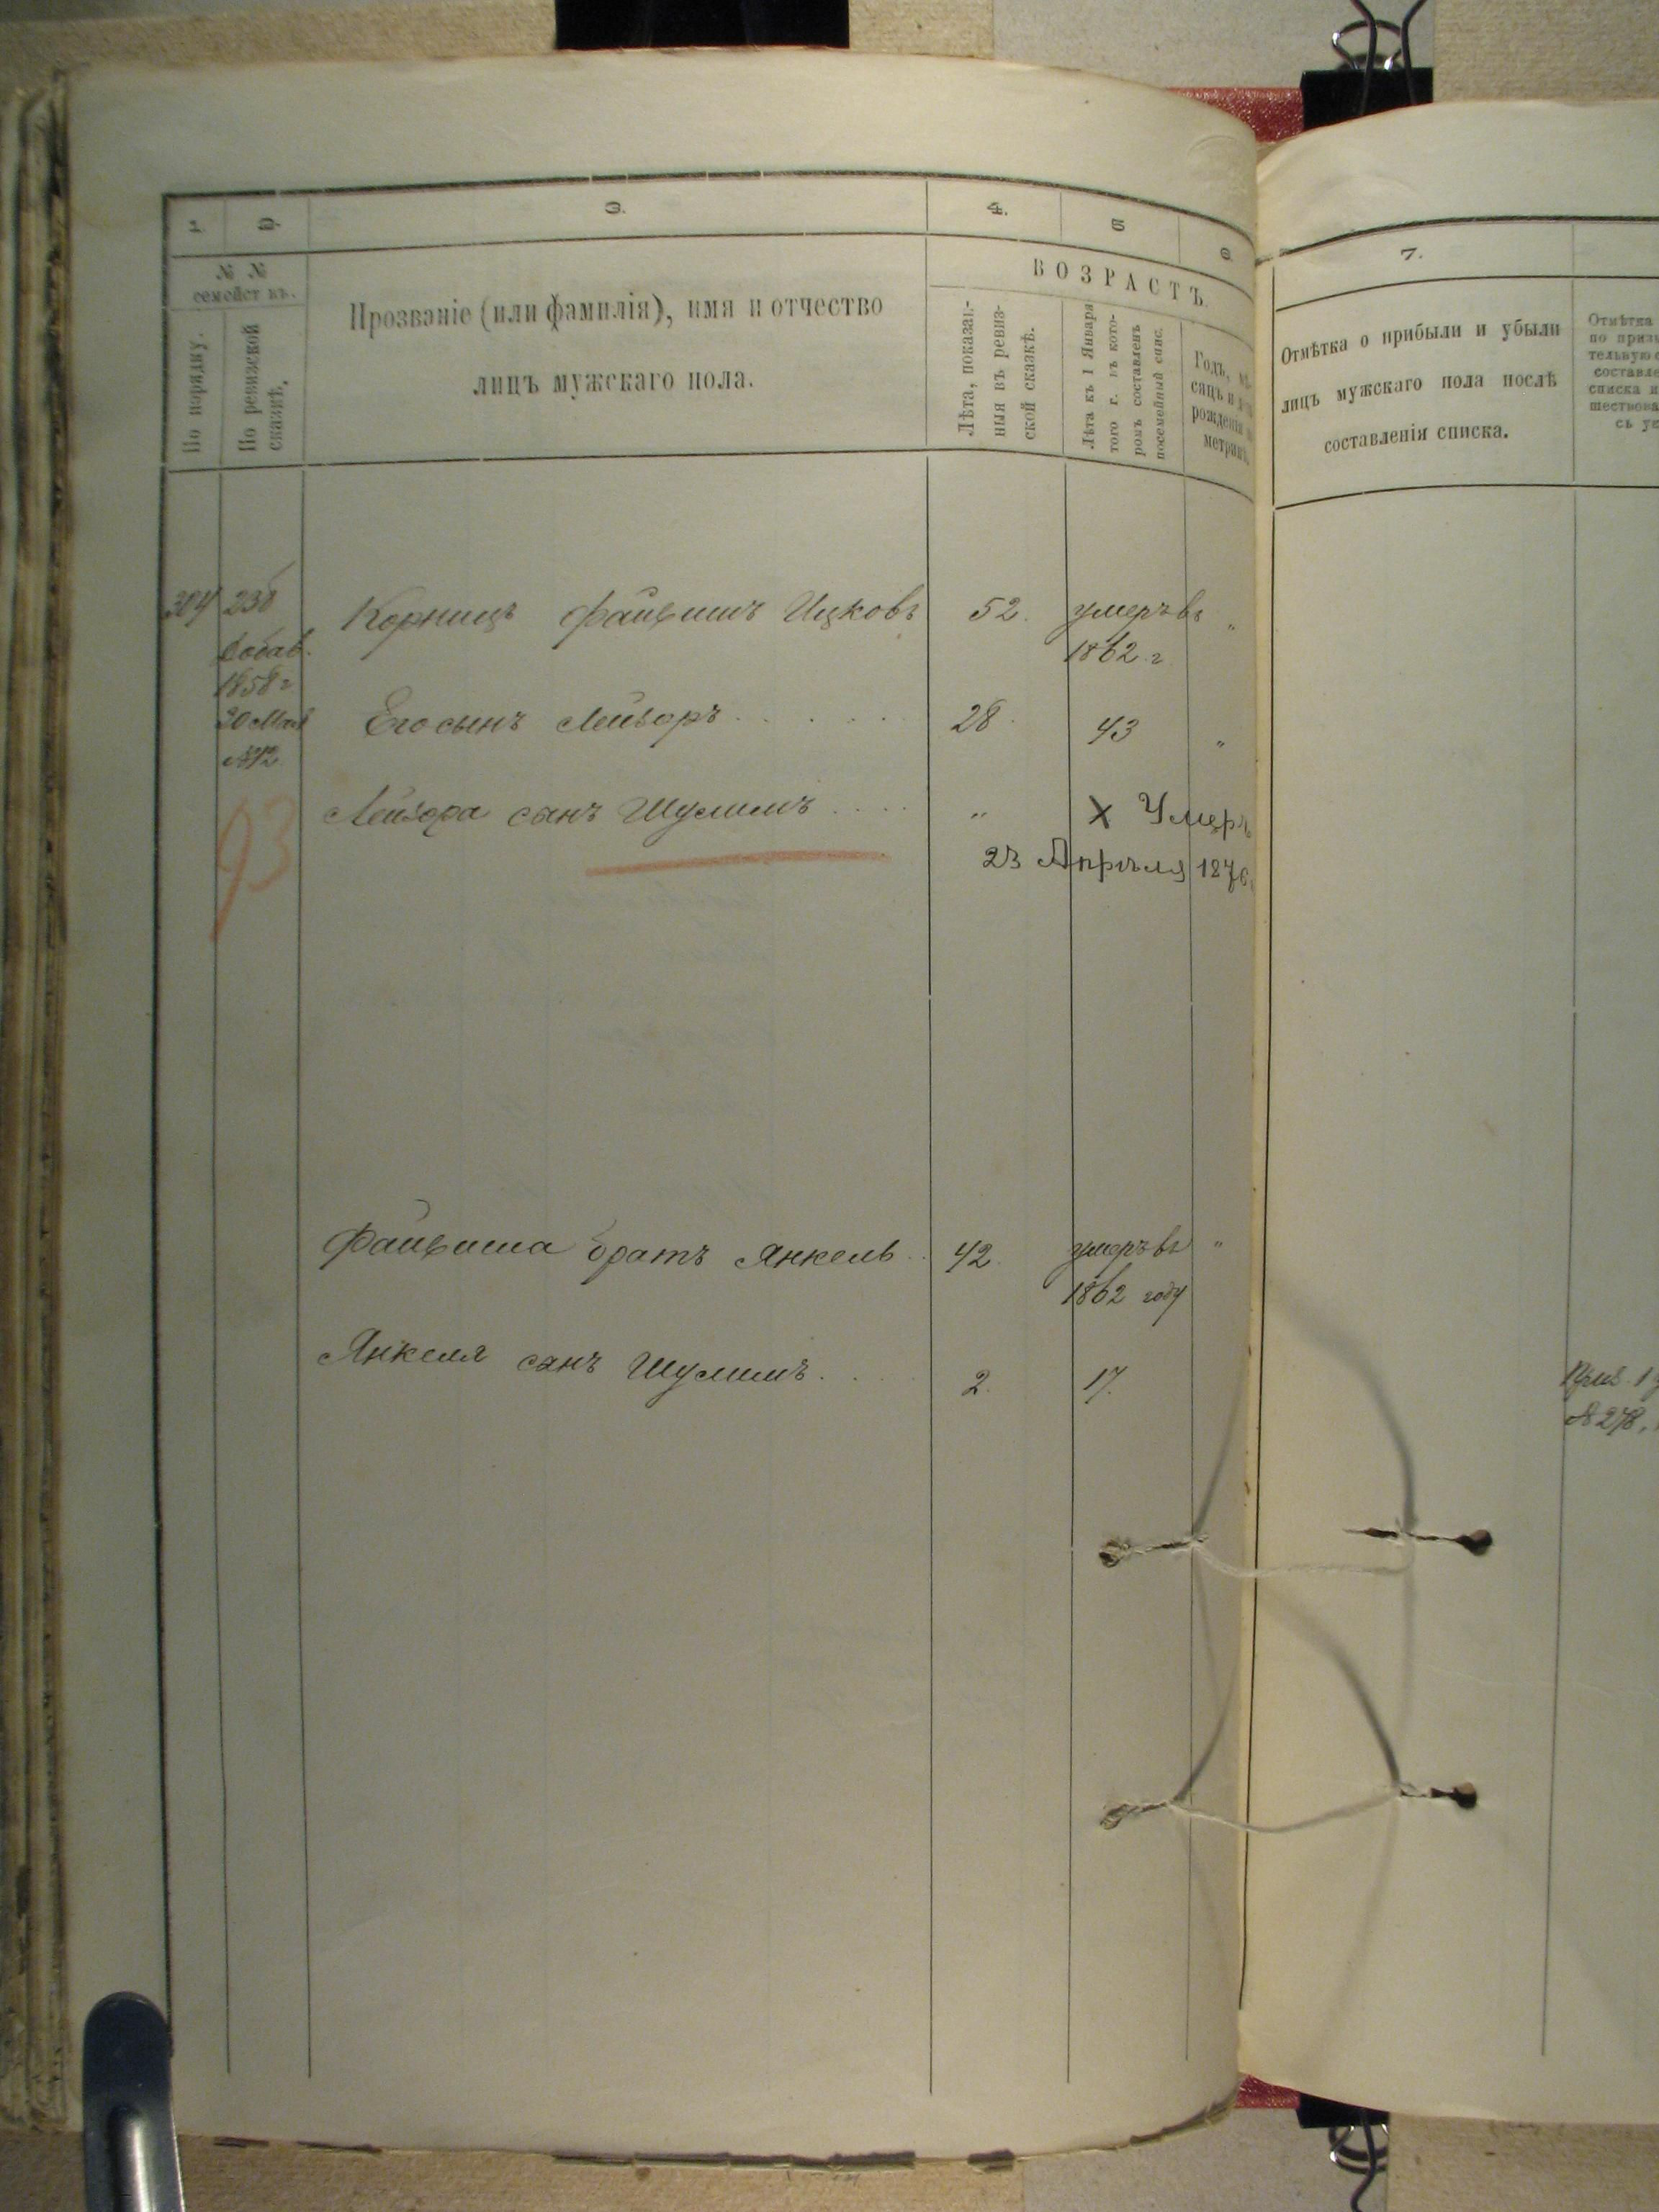 1.
2.
3.
4.
5
6.
7.
№ №
семействъ.
По порядку.
По ревизской
сказкѣ.
Прозваніе (или фамилія), имя и отчество
лицъ мужскаго пола.
ВОЗРАСТЪ.
Лѣта, показан-
ныя въ ревиз-
ской сказкѣ.
Лѣта къ 1 Января
того г. въ кото-
ромъ составленъ
посемейный спис.
Годъ, мѣ-
сяцъ и
рожденія
метрик.
Отмѣтка о прибыли и убыли
лицъ мужскаго пола послѣ
составленія списка.
Отмѣтка
по приз
тельную
составле
списка и
шествова
съ ус
304 236 Корницъ Файвишъ Ицковъ 52. умеръ въ "
Добав. 1862. г.
1858 г
20 Мая Его сынъ Лейзоръ 28. 43 "
№12
Лейзора сынъ Шулимъ " X Умеръ
93 23 Апрѣля 1876
Файвиша братъ Янкель 42. умеръ въ "
1862 году
Янкеля сынъ Шулимъ 2. 17.
№ 278.